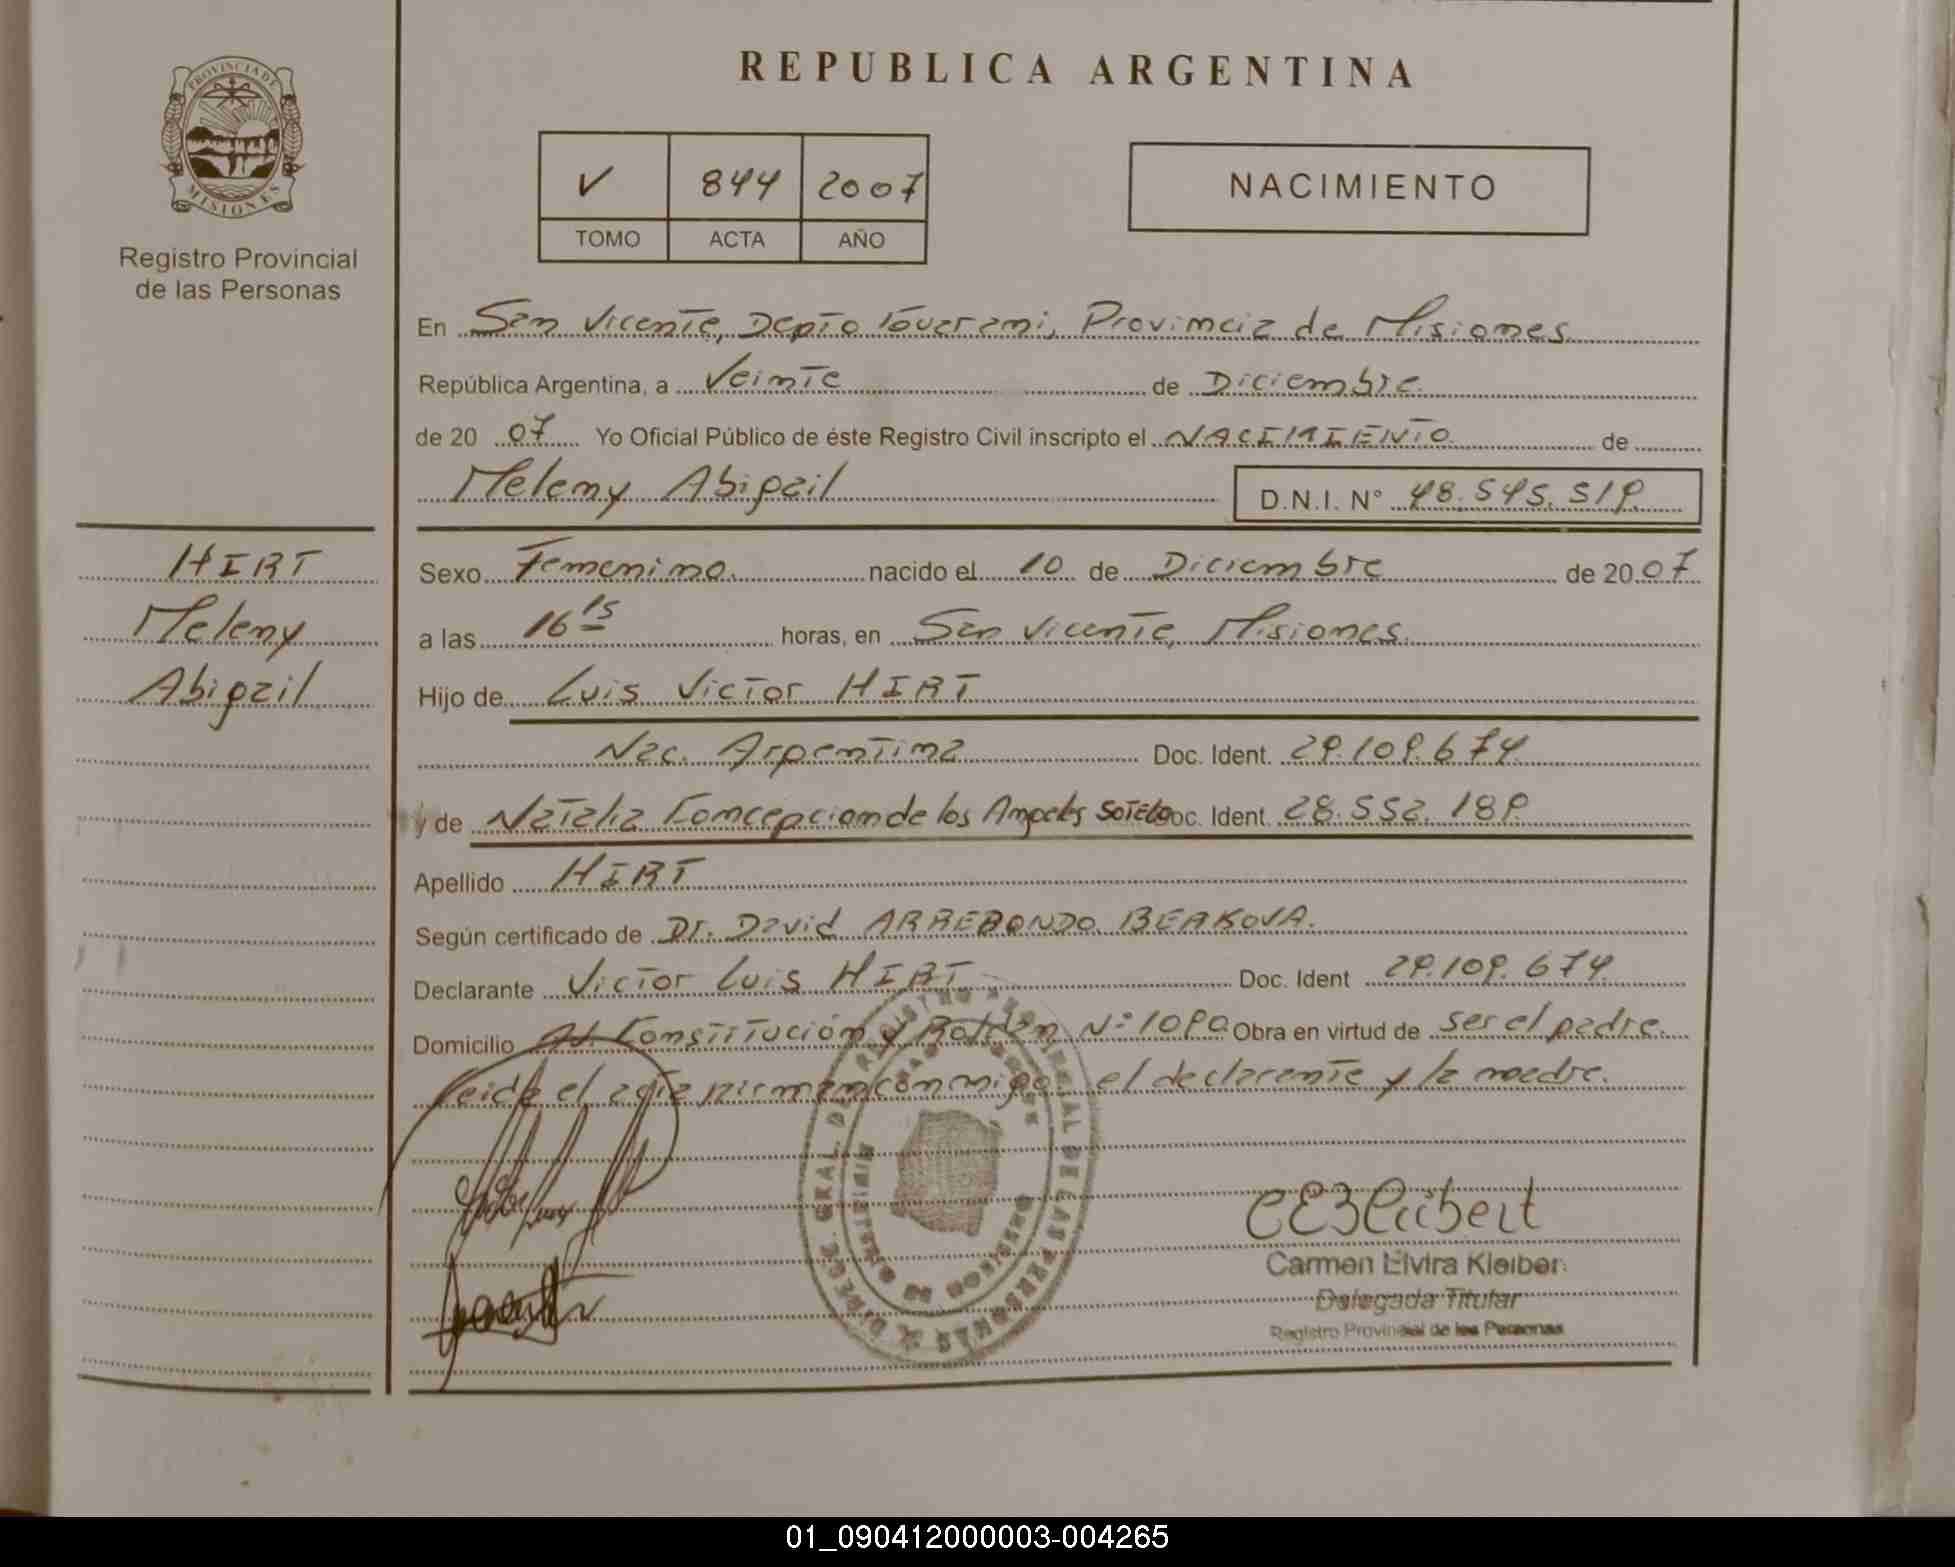 PROVINCIA DE
MISIONES
Registro Provincial
de las Personas
REPUBLICA ARGENTINA
V 844 2007
TOMO ACTA AÑO
NACIMIENTO
En San Vicente, Depto Guarani, Provincia de Misiones
República Argentina, a Veinte de Diciembre
de 20 07 Yo Oficial Público de éste Registro Civil inscripto el NACIMIENTO de
Meleny Abigail D.N.I. N° 48.545.519
HIRT
Meleny
Abigail
Sexo Femenino nacido el 10 de Diciembre de 20 07
a las 16 15 horas, en San Vicente, Misiones.
Hijo de Luis Victor HIRT
Nac. Argentina Doc. Ident. 29.109.674
y de Natalia Concepcion de los Angeles SOTELO Doc. Ident. 28.552.189
Apellido HIRT
Según certificado de Dr. David ARREDONDO BERKOVA.
Declarante Victor Luis HIRT Doc. Ident 29.109.674
Domicilio Av. Constitución y Roldan N° 1090 Obra en virtud de ser el padre.
Leida el acta firman conmigo el declarante y la madre.
Carmen Elvira Kleiber
Delegada Titular
Registro Provincial de las Personas
01_090412000003-004265